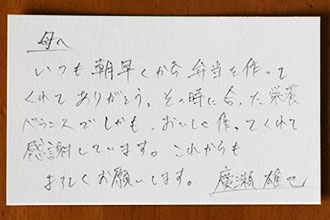 母へ
いつも朝早くから弁当を作って
くれてありがとう。その時に合った栄養
バランスでしかも、おいしく作ってくれて
感謝しています。これからも
よろしくお願いします。 廣瀬雄也